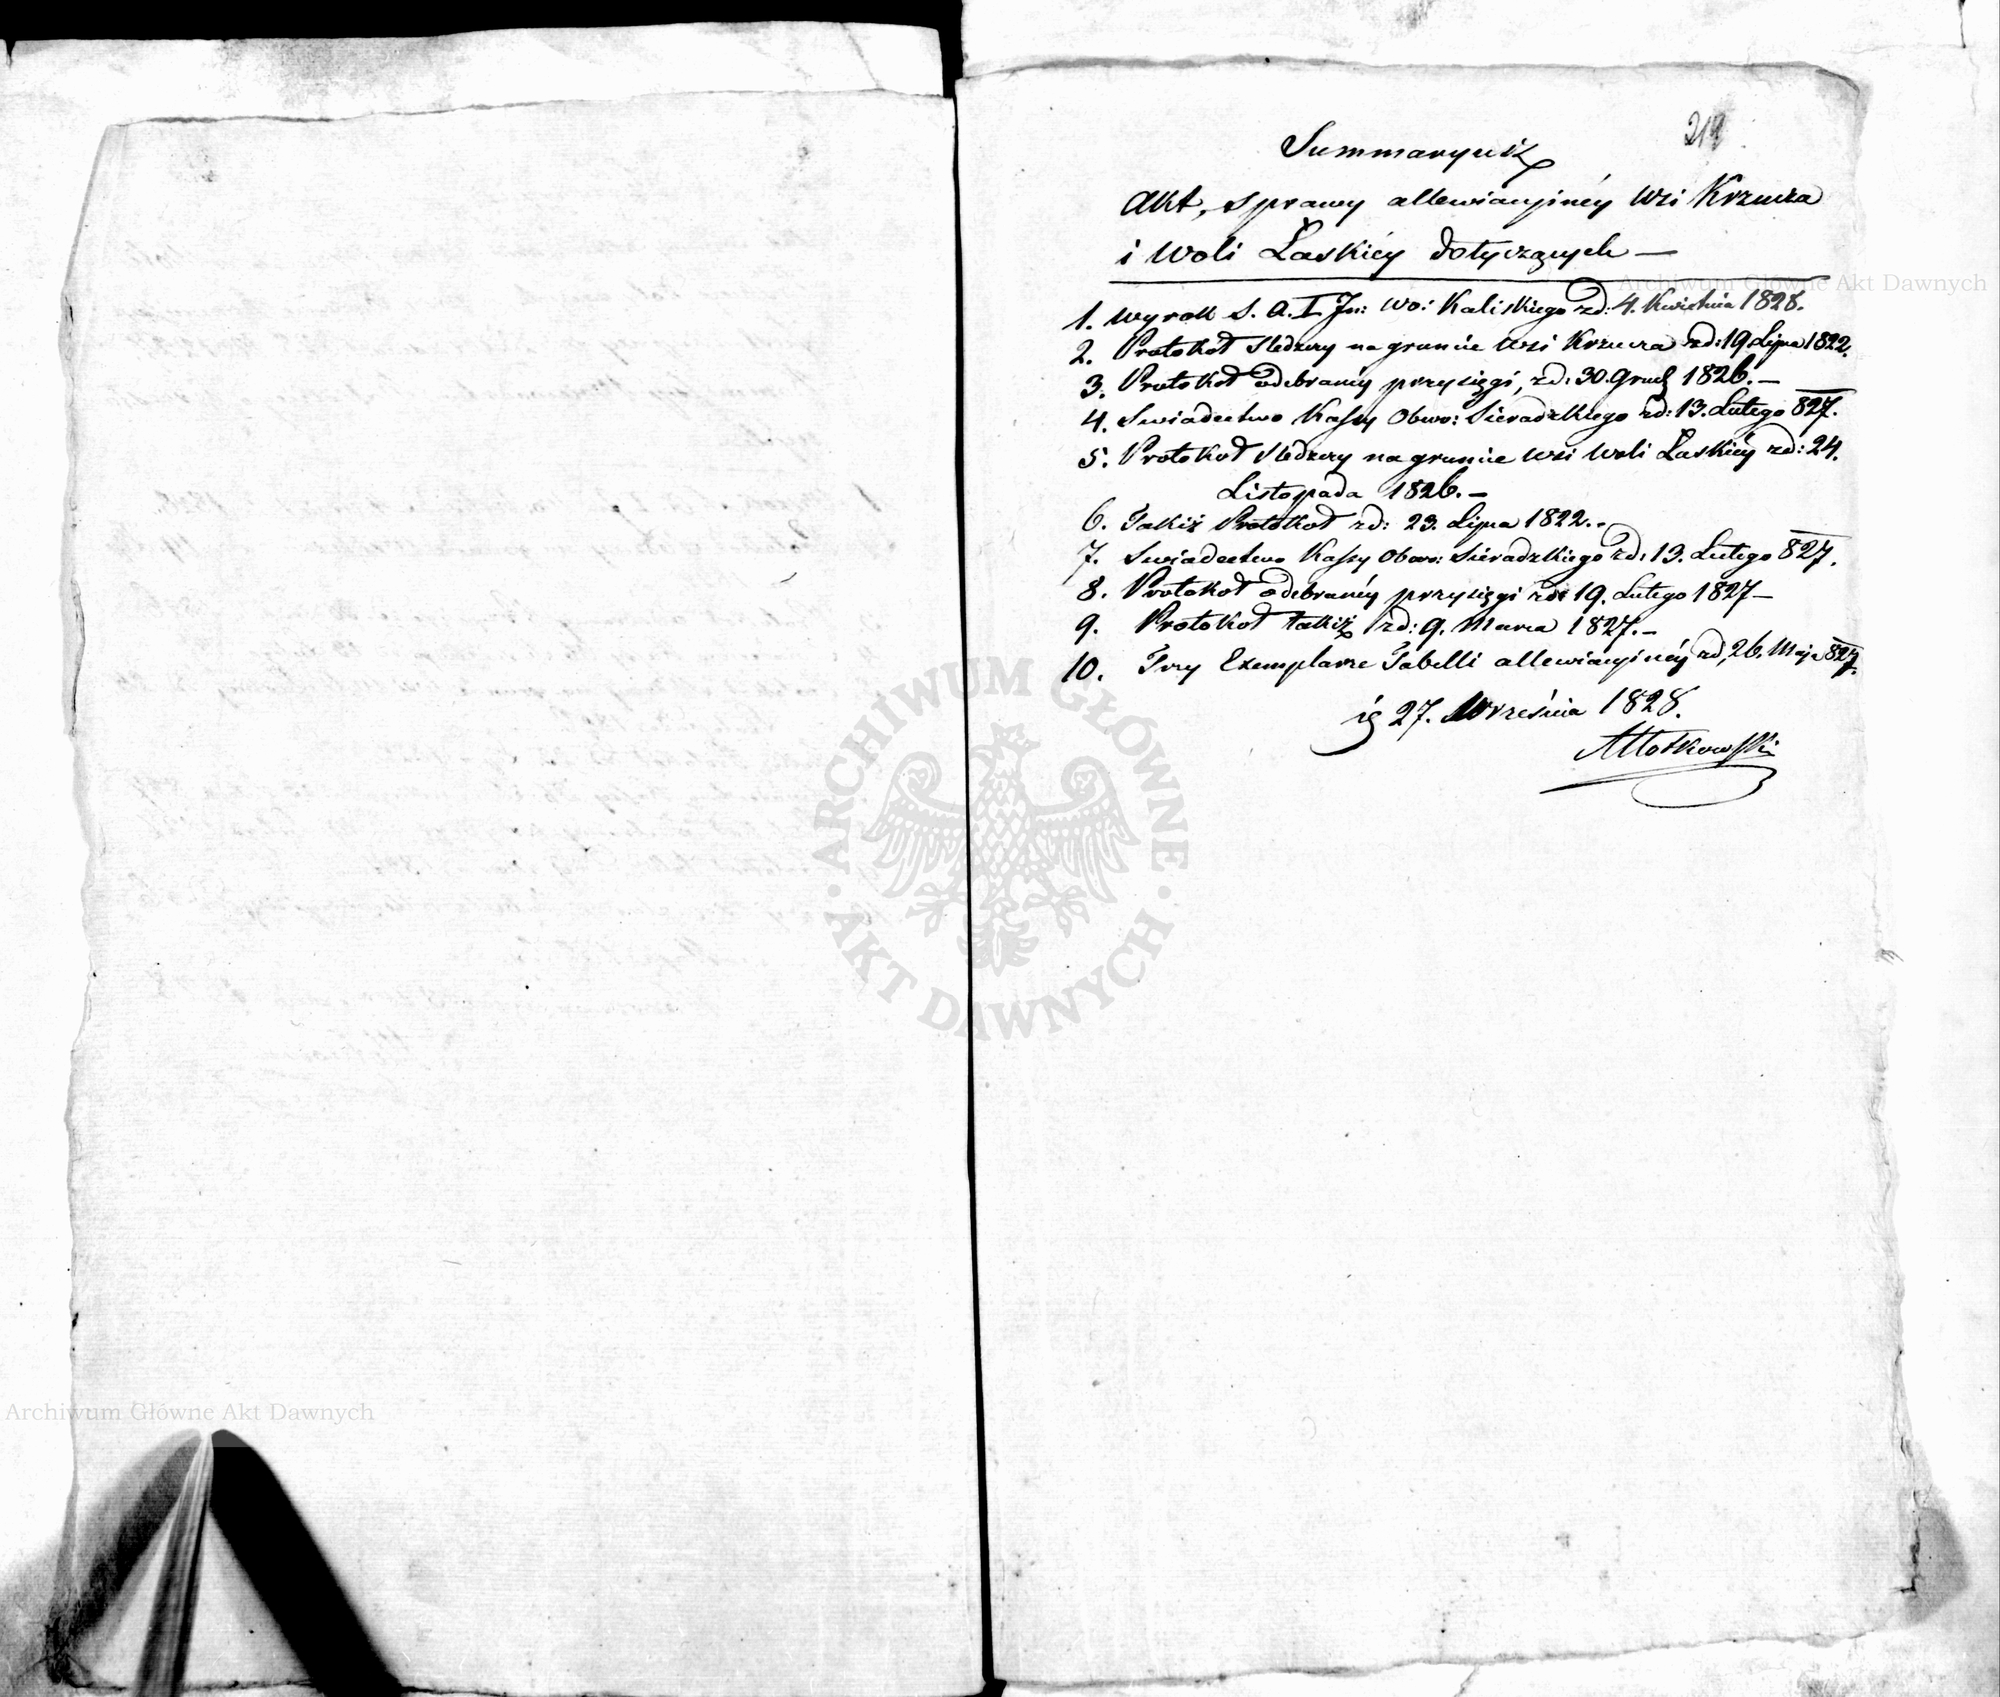 219
Summaryusz
Akt, sprawy allewiacyinéy Wsi Krzucza
i Woli Łaskiéy dotyczących —
1. Wyrok S. A. I Jn: Wo: Kaliskiego zd: 4. Kwietnia 1828.
2. Protokół Sledczy na gruncie Wsi Krzucza zd: 19 Lipca 1822.
3. Protokół odebranéy przysięgi, zd: 30. Grud 1826. —
4. Swiadectwo Kassy Obwo: Sieradzkiego zd: 13. Lutego 827.
5. Protokół Sledczy na gruncie Wsi Woli Łaskiéy zd: 24.
Listopada 1826. —
6. Takiż Protokół zd: 23. Lipca 1822. -
7. Swiadectwo Kassy Obwo: Sieradzkiego zd: 13. Lutego 827.
8. Protokół odebranéy przysięgi zd: 19. Lutego 1827 —
9. Protokół takiż zd: 9. Marca 1827. —
10. Trzy Exemplarze Tabelli allewiacyinéy zd, 26. Maja 827.
27. Września 1828.
Archiwum Główne Akt Dawnych
ARCHIWUM GŁÓWNE
AKT DAWNYCH
Archiwum Główne Akt Dawnych